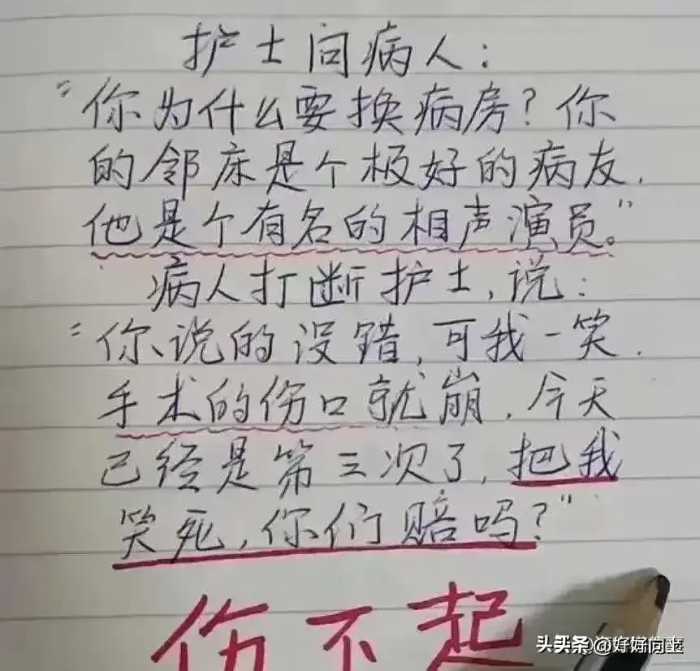 护士问病人：
“你为什么要换病房？你
的邻床是个极好的病友，
他是个有名的相声演员。”
病人打断护士，说：
“你说的没错，可我一笑，
手术的伤口就崩，今天
已经是第三次了，把我
笑死，你们赔吗？”
伤不起
头头条@好好